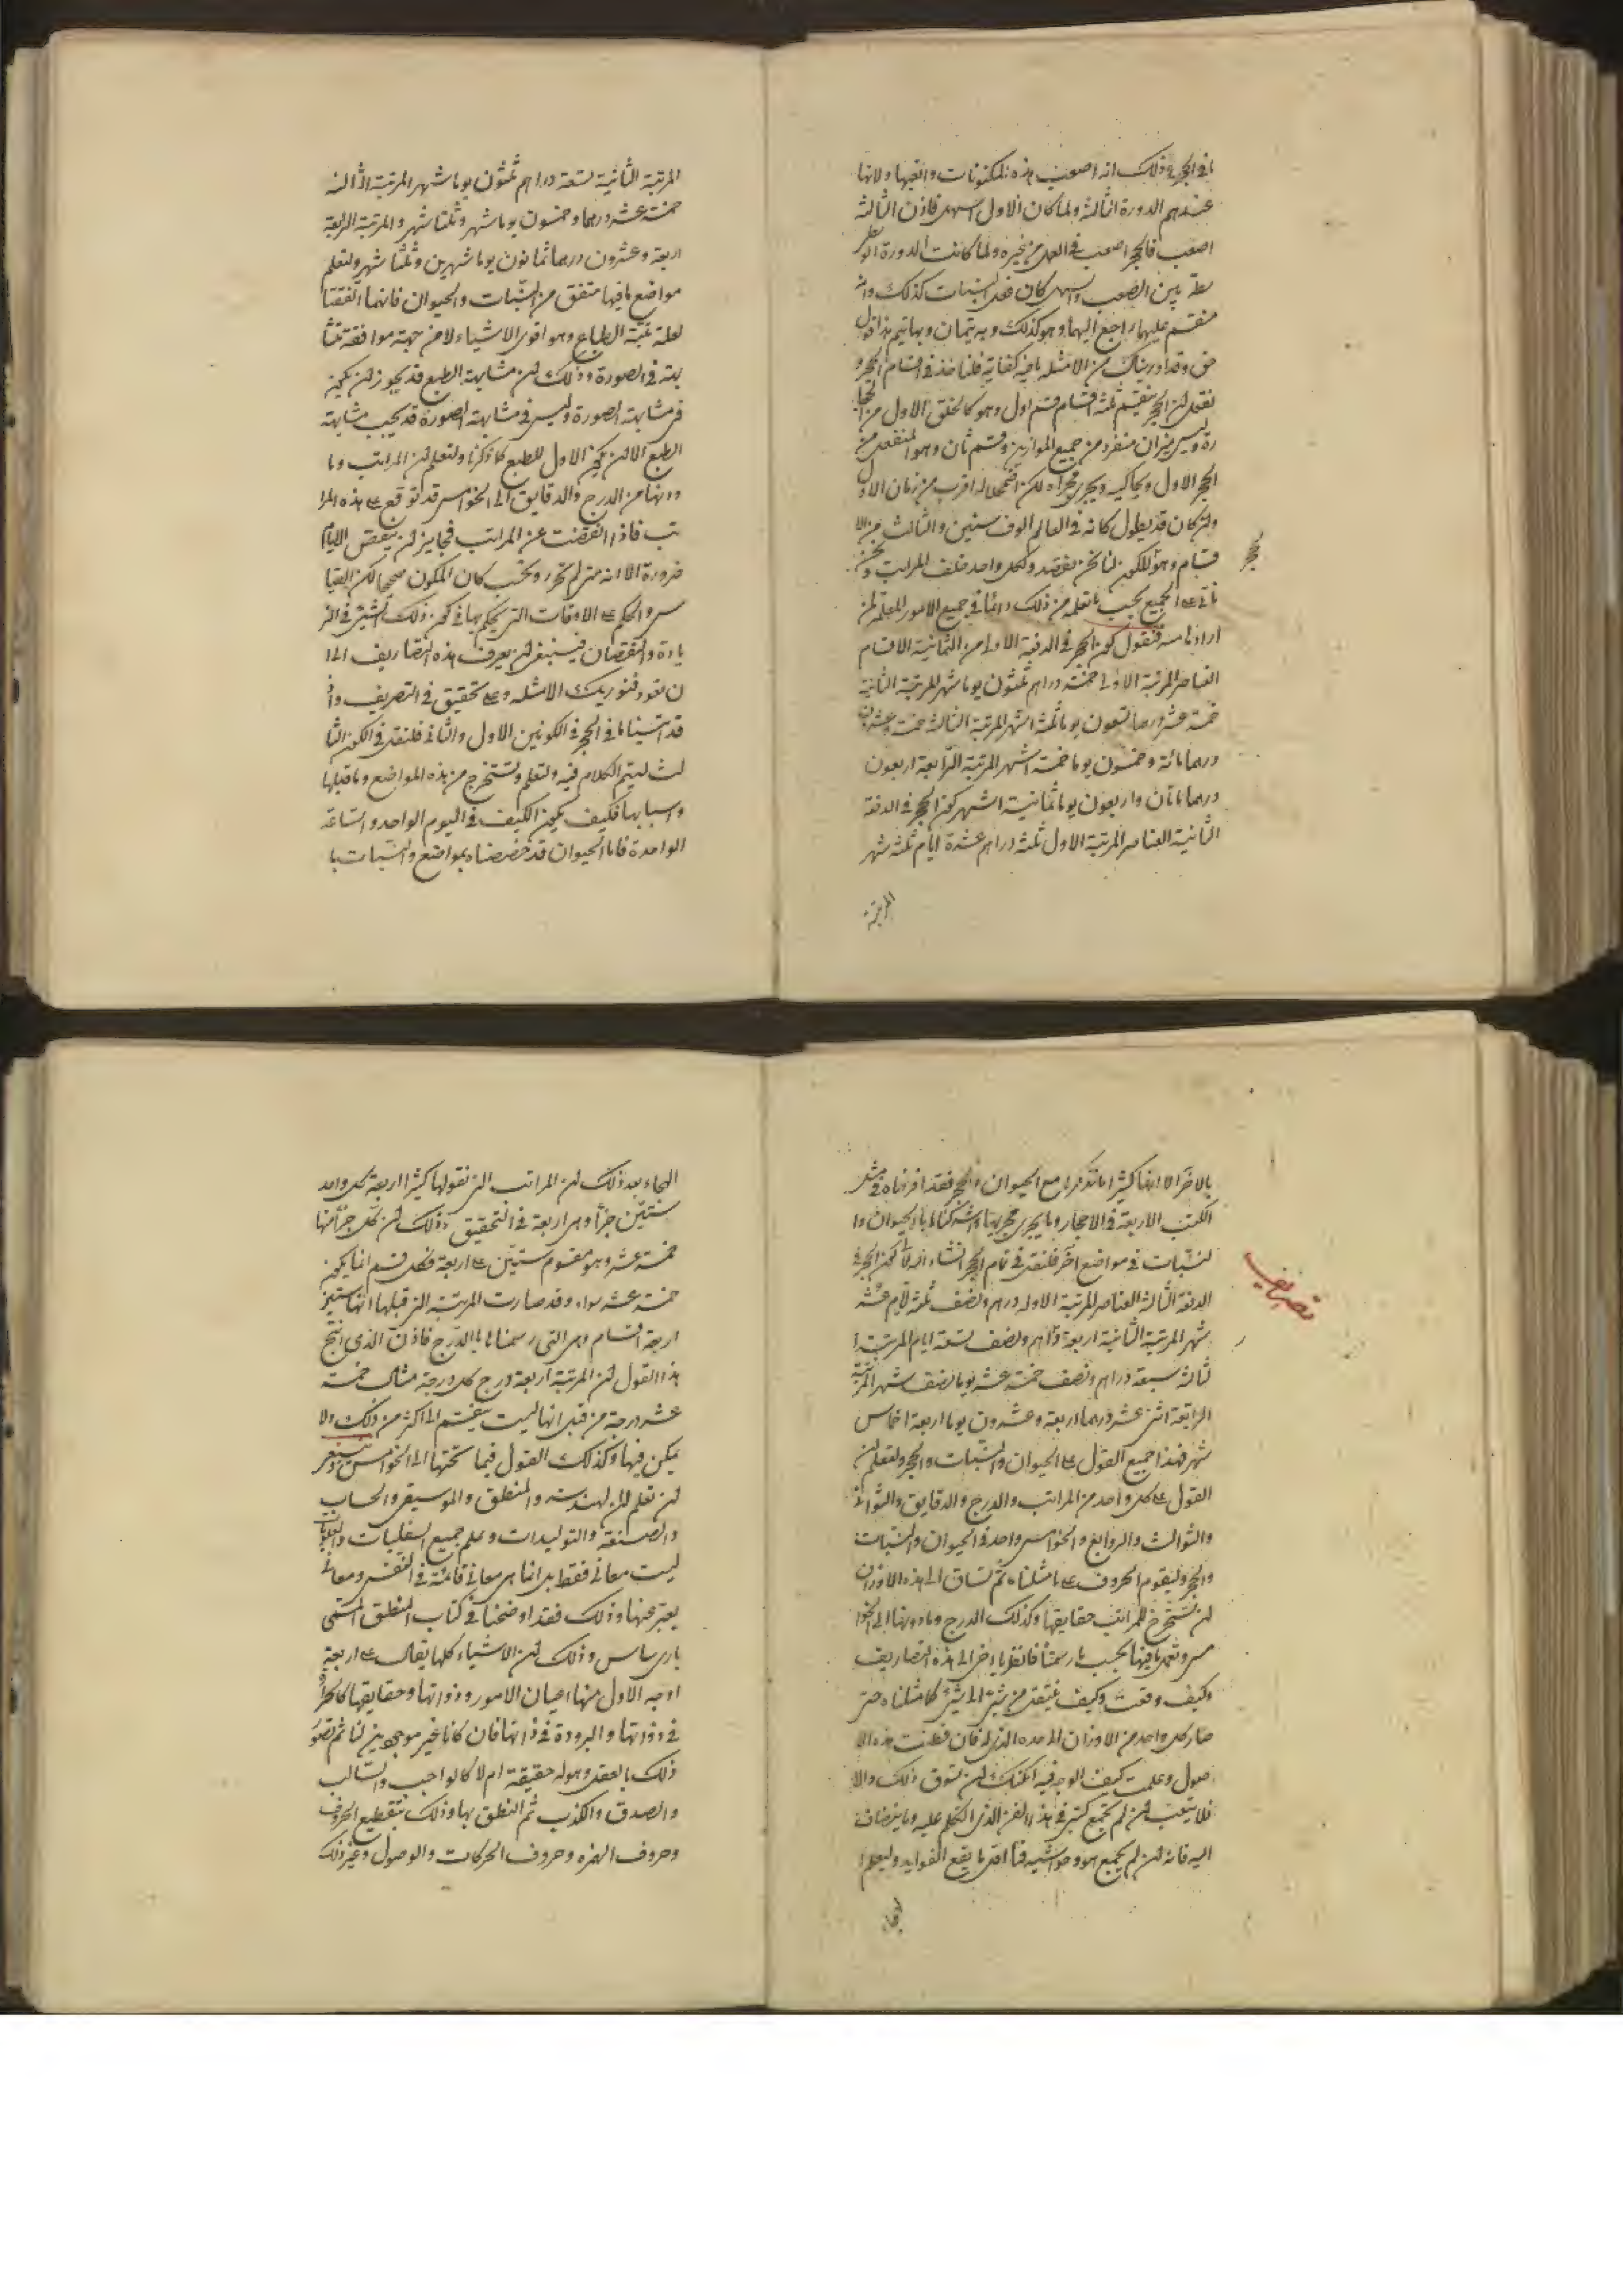 ما في الحجر وذلك انه اصعب هذه المكنونات واتعبها ولانها
عندهم الدورة الثالثة ولما كان الاول اسهل فاذن الثالثة
اصعب فالحجر اصعب في العمل من غيره ولما كانت الدورة الو
سطة بين الصعب والسهل كان عمل النبات كذلك وانه
منقسم عليهما راجع اليهما وهو كذلك وبه يتمان وبهما يتم هذا قول
حق وقد اوريناك من الامثلة ما فيه كفاية فلناخذ في اقسام الحجر و
نقول ان الحجر ينقسم ثلثة اقسام قسم اول وهو كالخلق الاول من الحجا
رة وليس بميزان منفرد من جميع الموازين وقسم ثان وهو المنفعل من
الحجر الاول ويحاكيه ويجري مجراه لكن اضمحلاله اقرب من زمان الاول
وان كان قد يطول كانه في العالم الوف سنين والثالث من الا
قسام وهو المكون لنا نحن بقصد ولكل واحد مختلف المراتب ونحن
ناتي على الجميع بحسب ما تعلمه من ذلك دائما في جميع الامور المعلم لمن
ارادنا منه فنقول كون الحجر في الدفعة الاولى من الثمانية الاقسام
العناصر المرتبة الاولى خمسة دراهم ثلثون يوما شهر المرتبة الثانية
خمسة عشر درهما تسعون يوما ثلثة اشهر المرتبة الثالثة خمسة وعشرون
درهما مائة وخمسون يوما خمسة اشهر المرتبة الرابعة اربعون
درهما مائتان واربعون يوما ثمانية اشهر كون الحجر في الدفعة
الثانية العناصر المرتبة الاولى ثلثة دراهم عشرة ايام ثلث شهر
المرتبة
المرتبة الثانية تسعة دراهم ثلثون يوما شهر المرتبة الثالثة
خمسة عشر درهما وخمسون يوما شهر وثلثا شهر والمرتبة الرابعة
اربعة وعشرون درهما ثمانون يوما شهرين وثلثا شهر ولتعلم
مواضع ما فيها متفق من النبات والحيوان فانهما اتفقتا
لعلة غلبة الطباع وهو اقوى الاشياء لا من جهة موافقة متشا
بهة في الصورة وذلك ان مشابهة الطبع قد يجوز ان يكون
في مشابهة الصورة وليس في مشابهة الصورة قد يجب مشابهة
الطبع الا ان يكون الاول للطبع كما ذكرنا ولتعلم ان المراتب وما
دونها من الدرج والدقايق الى الخوامس قد توقع على هذه المرا
تب فاذا انفضت عن المراتب فجايز ان ينقص الايام
ضرورة الا انه متى لم تحرر وتحسب كان المكون صحيحا لكن القيا
س والحكم على الاوقات التي يحكم بها في كون ذلك الشيء في الز
يادة والنقصان فينبغي ان يعرف هذه التصاريف الى ا
ن نعود فنوريك الامثلة وعلى تحقيق في التصريف واذ
قد اتينا ما في الحجر في الكونين الاول والثاني فلنقل في الكون الثا
لث ليتم الكلام فيه ولتعلم وتستخرج من هذه المواضع وما قبلها
واسبابها فكيف يكون الكيف في اليوم الواحد والساعة
الواحدة فاما الحيوان قد خصصناه بمواضع والنبات با
بالاخر الا انها كثيرا ما تذكرها مع الحيوان والحجر فقد افردناه في مثل
الكتب الاربعة في الاحجار وما يجري مجريها واشركناها بالحيوان وا
لنبات في مواضع اخر فلنقل في تمام الحجر انشاء الله تعالى كون الحجر في
الدفعة الثالثة العناصر المرتبة الاولى درهم ونصف ثلثة ايام عشر
شهر المرتبة الثانية اربعة دراهم ونصف تسعة ايام المرتبة ا
لثالثة سبعة دراهم ونصف خمسة عشر يوما نصف شهر المرتبة
الرابعة اثنى عشر درهما اربعة وعشرون يوما اربعة اخماس
شهر فهذا جميع القول على الحيوان والنبات والحجر ولتعلم ان
القول على كل واحد من المراتب والدرج والدقايق والثواني
والثوالث والروابع والخوامس واحد في الحيوان والنبات
والحجر وليقوم الحروف على ما مثلناه ثم تساق الى هذه الاوزان
ان تستخرج المراتب حقايقها وكذلك الدرج وما دونها الى الخوا
مس وتعمل ما فيها بحسب ما رسمنا فانظر يا اخي الى هذه التصاريف
وكيف وقعت وكيف تنتقل من شيء الى شيء كما مثلناه حتى
صار كل واحد من الاوزان الى حده الذي له فان فطنت هذه الا
صول وعلمت كيف الوجه فيه امكنك ان تسوق ذلك والا
فلا تتعب فمن لم يجمع كتبي في هذا الفن الذي اتكلم عليه وما ينضاف
اليه فانه ان لم يجمع هو وحواشيه فما اقل ما يقع الفوايد وليعلم ا
تصاريف
الهجاء بعد ذلك ان المراتب التي نقولها كثيرا اربعة كل واحد
ستين جزأ وهي اربعة في التحقيق وذلك ان كل جزأ منها
خمسة عشر وهو مقسوم ستين على اربعة فكل قسم انما يكون
خمسة عشر سواء وقد صارت المرتبة التي قبلها انها ستين
اربعة اقسام وهي التي رسمناها بالدرج فاذن الذي انتج
هذا القول ان المرتبة اربعة درج كل درجة مثال خمسة
عشر درجة من قبل انها ليست ينقسم الى اكثر من ذلك ولا
يمكن فيها وكذلك القول فيما تحتها الى الخوامس وينبغي
ان تعلم ان الهندسة والمنطق والموسيقى والحساب
والصنعة والتوليدات وعلم جميع السفليات والعلويات
ليست معاني فقط بل انما هي معاني قائمة في النفس ومعاني
يعبر عنها وذلك فقد اوضحنا في كتاب المنطق المسمى
باري ساس وذلك ان الاشياء كلها يقال على اربعة
اوجه الاول منها اعيان الامور وذواتها وحقايقها كالحرارة
في ذواتها والبرودة في ذاتها فان كانا غير موجودين لنا ثم تصور
ذلك بالعقل وهو له حقيقة ام لا كالواجب والسالب
والصدق والكذب ثم النطق بها وذلك بتقطيع الحروف
وحروف الهمزه وحروف الحركات والوصول وغير ذلك